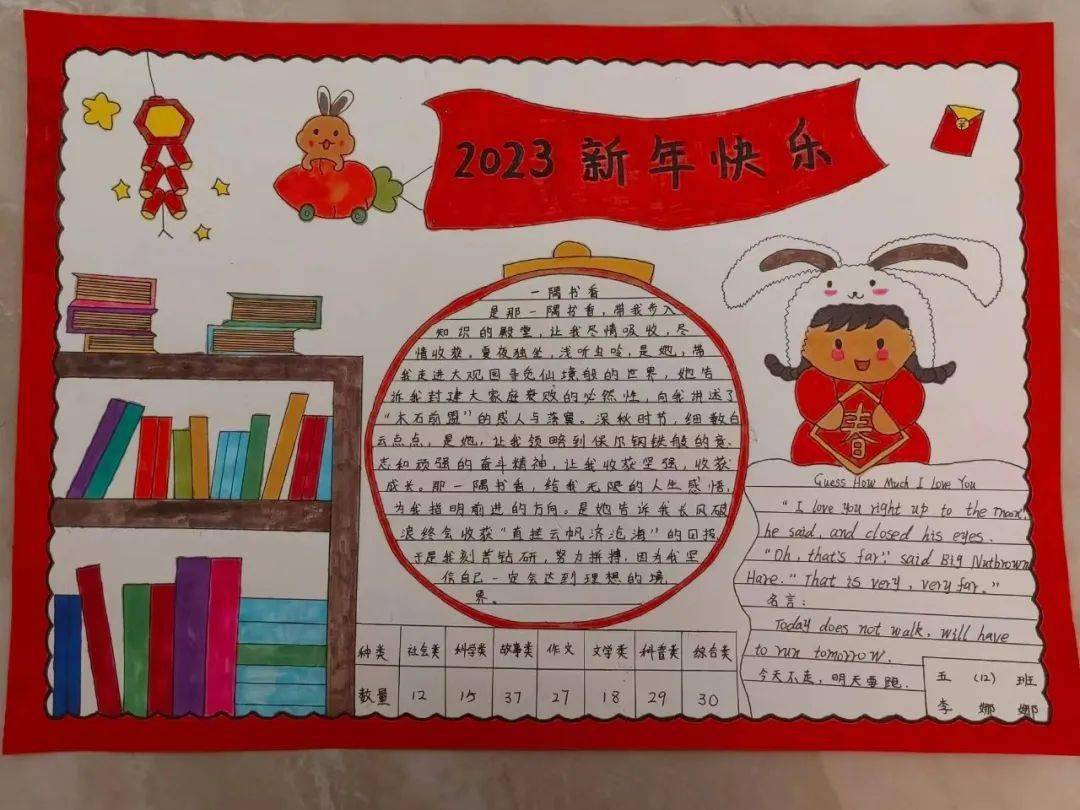 2023 新年快乐
一隅书香
是那一隅书香,带我步入
知识的殿堂,让我尽情吸收,尽
情收获,夏夜独坐,浅听虫吟,是她,带
我走进大观园寻觅仙境般的世界,她告
诉我封建大家庭衰败的必然性,向我讲述了
“木石前盟”的感人与落寞。深秋时节,细数白
云点点,是她,让我领略到保尔钢铁般的意
志和顽强的奋斗精神,让我收获坚强,收获
成长。那一隅书香,给我无限的人生感悟,
为我指明前进的方向。是她告诉我长风破
浪终会收获“直挂云帆济沧海”的回报
于是我刻苦钻研,努力拼搏,因为我坚
信自己一定会达到理想的境
界。
种类 社会类 科学类 故事类 作文 文学类 科普类 综合类
数量 12 15 37 27 18 29 30
春
Guess How Much I Love You
“I love you right up to the moon,”
he said, and closed his eyes.
“Oh, that's far,” said Big Nutbrown
Hare. “That is very, very far.”
名言:
Today does not walk, will have
to run tomorrow.
今天不走,明天要跑.
五 (12) 班
李 娜 娜